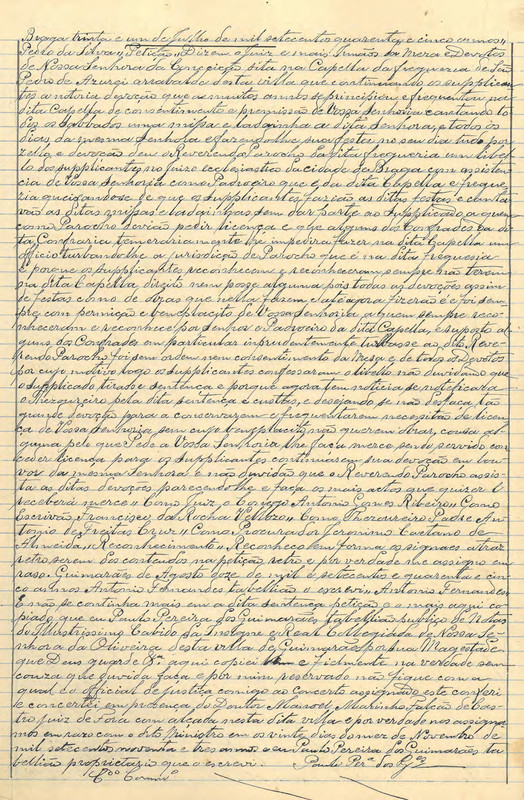 Braga trinta e um de Julho de mil setecentos quarenta e cinco annos „
Pedro da Silva „ Petição „ Dizem o Juiz e mais Irmãos da Meza e Devotos
de Nossa Senhora da Conceição sita na Capella da freguezia de São
Pedro de Azurei arrabalde desta villa que continuando os supplican-
tes a notoria devoção que a muitos annos se principiou e frequentou na
dita Capella de consentimento e premissão de Vossa Senhoria cantando to-
dos os sabbados uma missa e ladainha a dita Senhora, e todos os
dias da mesma Senhora e fazendolhe sua festa no seu dia tudo por
zello e devoção deu o Reverendo Parocho da dita freguezia um libel-
lo dos supplicantes no juizo ecclesiastico da cidade de Braga com assisten-
cia de Vossa Senhoria como Padroeiro que é da dita Capella e fregue-
zia queixandose de que os supplicantes fazião as ditas festas e canta-
vão as ditas missas e ladainhas sem dar parte ao supplicado a quem
como Parocho devião pedir licença e que alguns dos Confrades da di-
ta Confraria temerariamente lhe impedira fazer na dita Capella um
officio turbandolhe a jurisdição de Parocho que é na dita freguesia
e porque os supplicantes reconhecem e reconheceram sempre não terem
na dita Capella dizião nem posse alguma pois todas as devoções assim
de festas como de dozas que nella fazem e até agora fizerão é e foi sem-
pre com permição e beneplacito de Vossa Senhoria a quem sempre reco-
nheceram e reconhece por Senhor e Padroeiro da dita Capella, e suposto al-
guns dos Confrades em particular imprudentemente turbasse ao dito Reve-
rendo Parocho foi sem ordem nem consentimento da Mesa e de todos os Devotos
por cujo motivo logo os supplicantes confessaram o libello não duvidando que
o supplicado tirasse sentença e porque agora tem noticia se noteficara
o Thezoureiro pela dita sentença e custas, e desejando se não desfaça tão
grande devoção para a conservarem e frequentarem necessitão de licen-
ça de Vossa Senhoria sem cujo beneplacito não querem obrar cousa al-
guma pelo que Pede a Vossa Senhoria lhe faça merce sendo servido con-
ceder licença para os supplicantes continuarem sua devoção em lou-
vor da mesma Senhora e não duvidão que o Reverendo Parocho assis-
ta as ditas devoções parecendolhe e faça os mais actos que quizer e
receberá merce „ Como Juiz o Conego Antonio Gomes Ribeiro „ Como
Escrivão Francisco da Rocha Vellozo „ Como Thezoureiro Padre An-
tonio de Freitas Cruz „ Como Procurador Jeronimo Caetano de
Almeida „ Reconhecimento „ Reconheço em forma os signaes atraz
retro serem dos contheudos na petição retro e por verdade me assigno em
raso. Guimarães de Agosto doze de mil e setecentos e quarenta e cin-
co annos Antonio Fernandes tabellião o escrevi „ Antonio Fernandes
E não se continha mais em a dita sentença petição e o mais aqui co-
piado que eu Paulo Pereira dos Guimarães tabellião publico de Notas
do Illustrissimo Cabido da Insigne e Real Collegiada de Nossa Se-
nhora da Oliveira desta villa de Guimarães por sua Magestade
que Deus guarde Eª. aqui copiei bem e fielmente na verdade sem
couza que duvida faça e por mim reservado não fique com a
qual e official de justiça comigo ao concerto assignado este conferi
e concertei em presença do Doutor Manoel Marinho Falcão de Cas-
tro juiz de Fora com alçada nesta dita villa e por verdade nos assigna-
mos em razo com o dito Ministro em os vinte dias do mez de Novembro de
mil setecentos noventa e tres annos e eu Paulo Pereira dos Guimarães ta-
bellião proprietario que o escrevi. Paulo Perª dos Gˢ